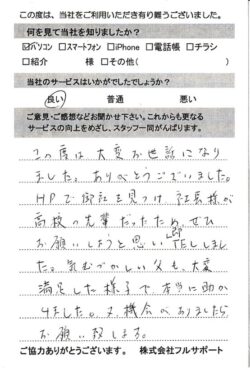 この度は、当社をご利用いただき有り難うございました。
何を見て当社を知りましたか?
☑パソコン □スマートフォン □iPhone □電話帳 □チラシ
□紹介 様 □その他( )
当社のサービスはいかがでしたでしょうか?
良い 普通 悪い
ご意見・ご感想などお聞かせ下さい。これからも更なる
サービスの向上をめざし、スタッフ一同がんばります。
この度は大変お世話になり
ました。ありがとうございました。
HPで御社を見つけ、社長様が
高校の先輩だったため、ぜひ
お願いしようと思い即TELしまし
た。気むづかしい父も、大変
満足した様子で本当に助か
りました。又機会がありましたら
お願い致します。
ご協力ありがとうございます。 株式会社フルサポート